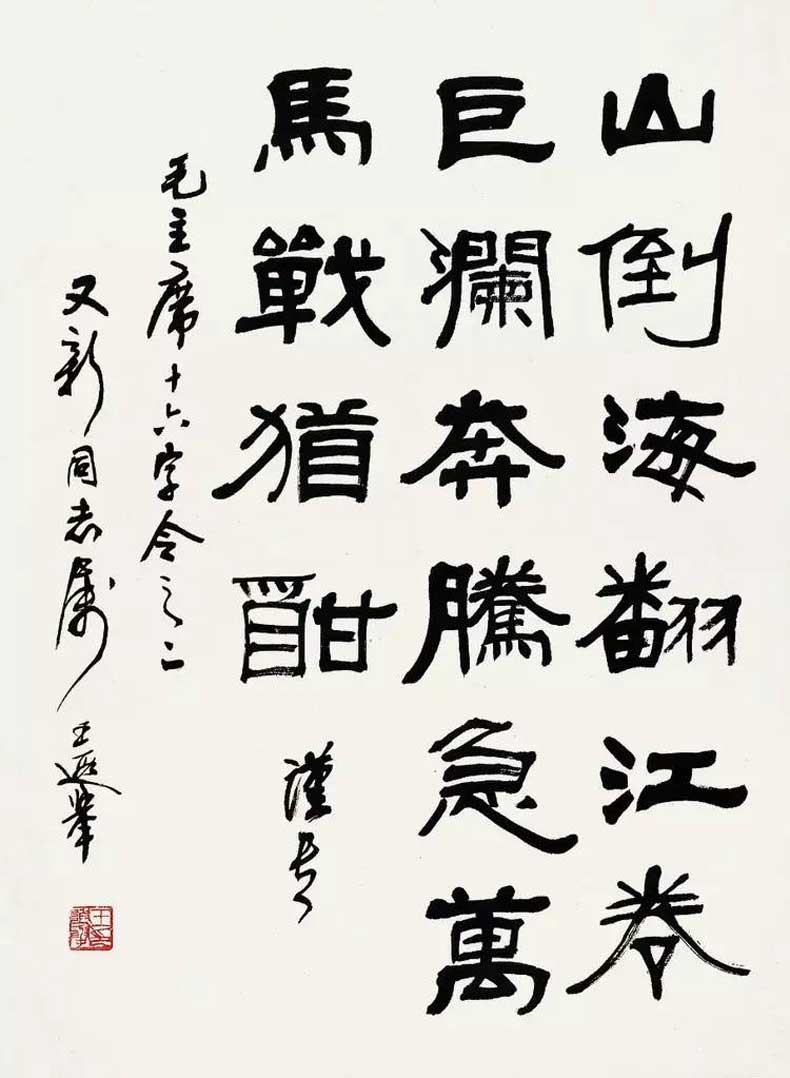 山倒海翻江卷
巨瀾奔騰急萬
馬戰猶酣 謹書
毛主席十六字令之二
又新同志属 王遐舉